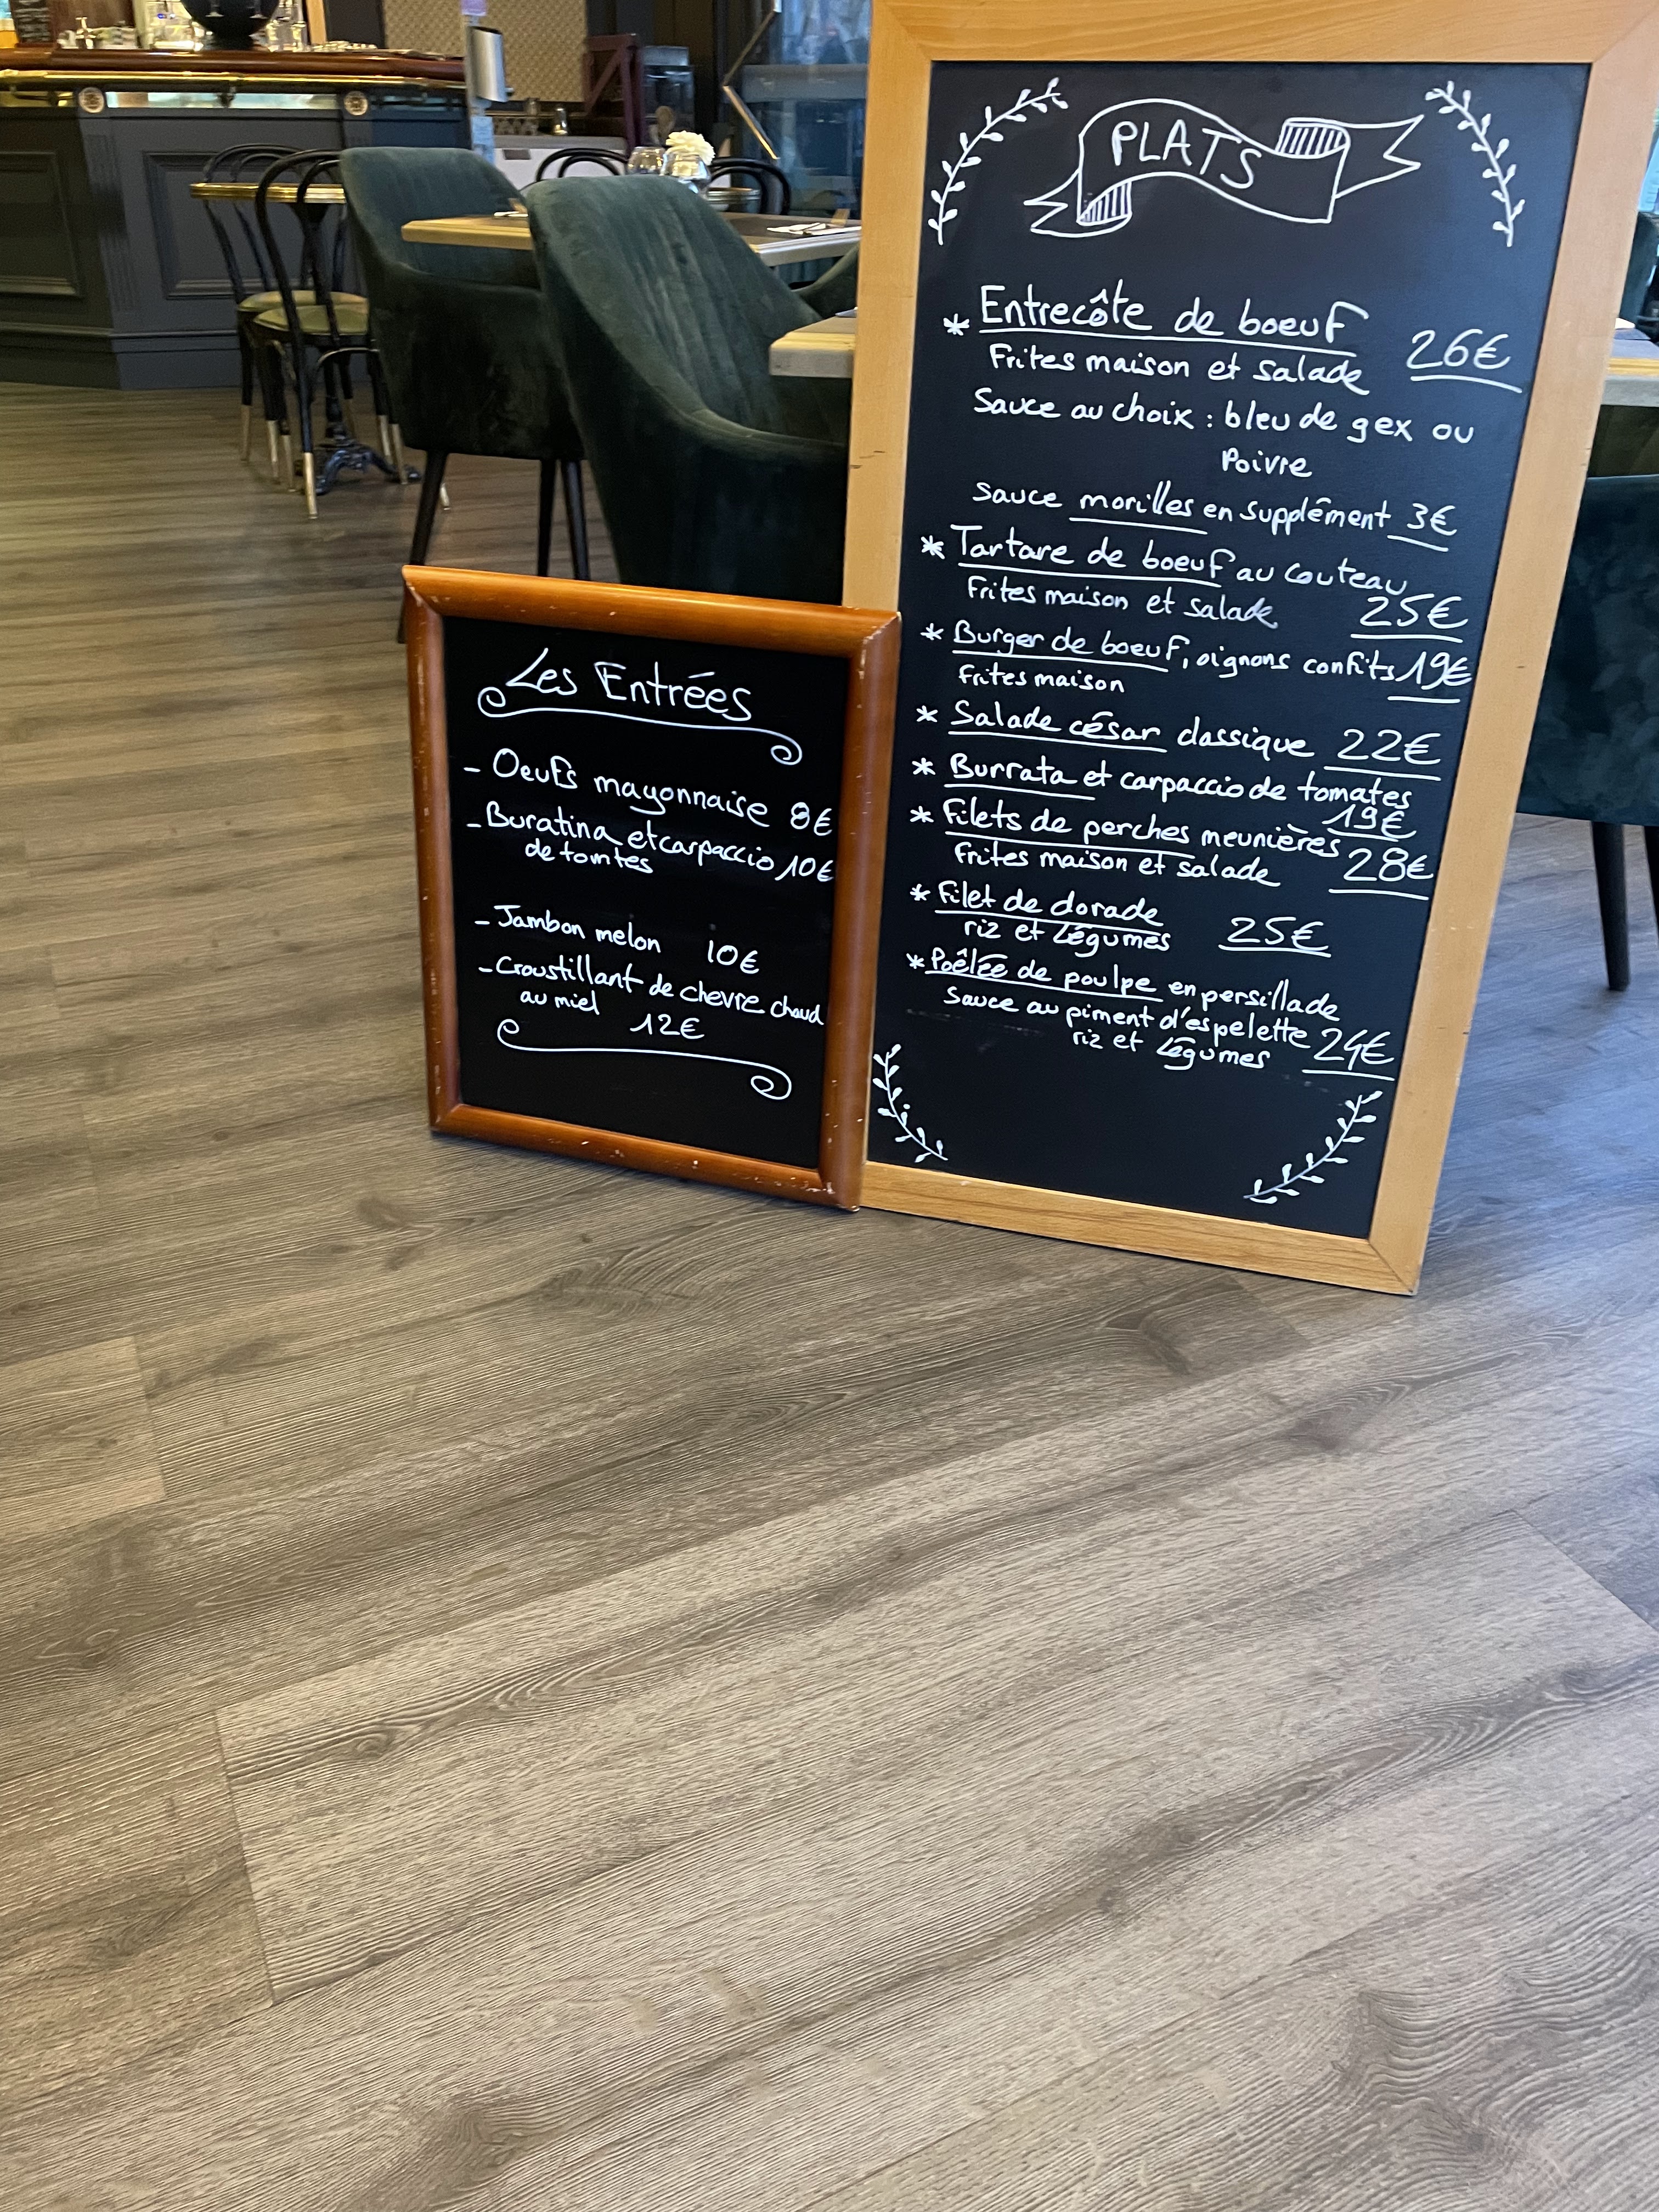 Les Entrées
- Oeufs mayonnaise 8€
- Buratina et carpaccio 10€
de tomtes
- Jambon melon 10€
- Croustillant de chevre chaud
au miel 12€
PLATS
* Entrecôte de boeuf 26€
Frites maison et salade
Sauce au choix : bleu de gex ou
Poivre
Sauce morilles en supplément 3€
* Tartare de boeuf au couteau
Frites maison et salade 25€
* Burger de boeuf, oignons confits 19€
Frites maison
* Salade césar classique 22€
* Burrata et carpaccio de tomates
19€
* Filets de perches meunières
Frites maison et salade 28€
* Filet de dorade
riz et légumes 25€
* Poêlée de poulpe en persillade
Sauce au piment d'espelette 24€
riz et légumes